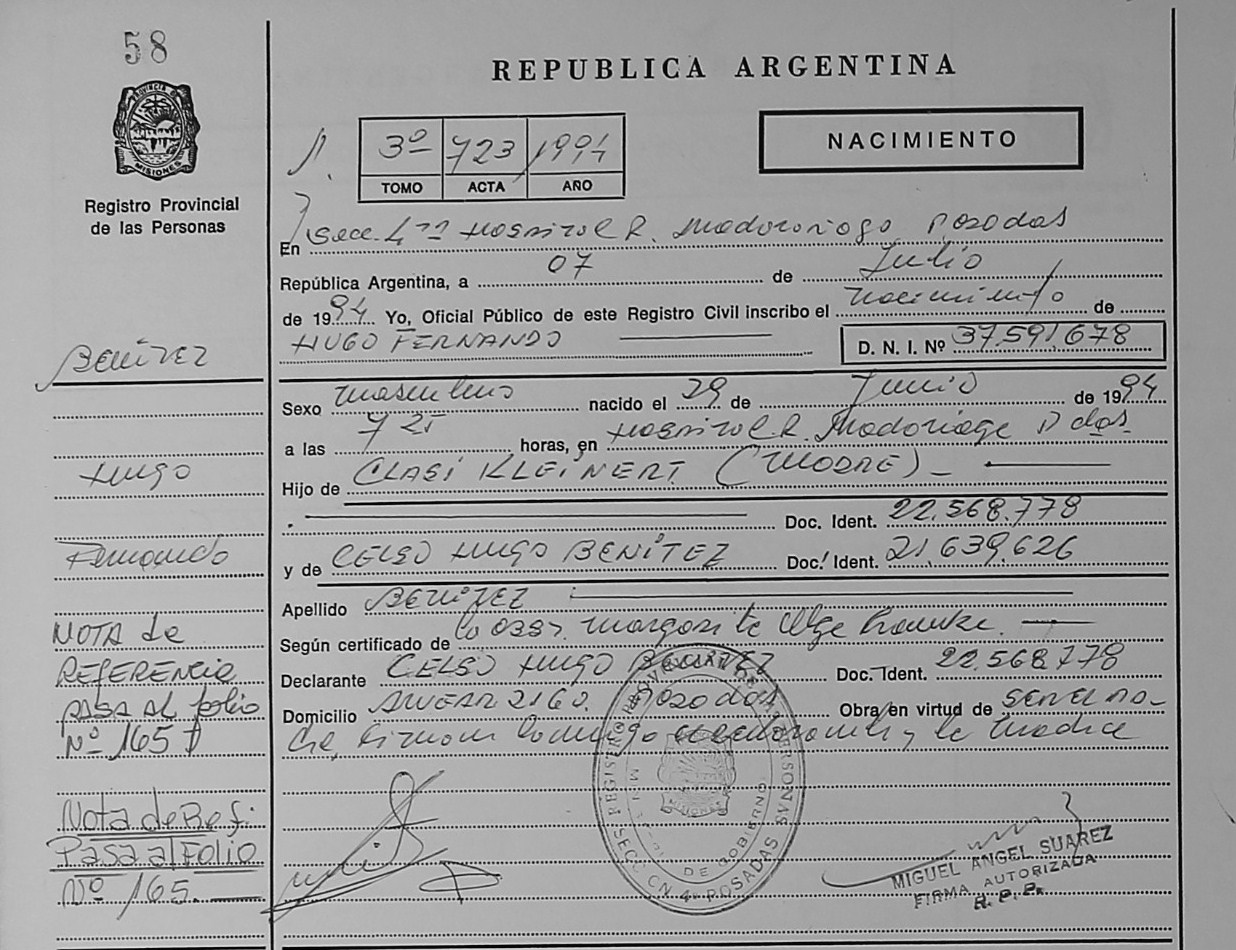 58
REPUBLICA ARGENTINA
PROVINCIA DE MISIONES
Registro Provincial
de las Personas
3º 723 1994
TOMO ACTA AÑO
NACIMIENTO
En Secc. 4ta Hospital R. Madariaga Posadas
República Argentina, a 07 de Julio
de 1994 Yo, Oficial Público de este Registro Civil inscribo el nacimiento de
HUGO FERNANDO D. N. I. Nº 37.591.678
Sexo masculino nacido el 29 de Junio de 1994
a las 7 25 horas, en Hospital R. Madariaga Pdas
Hijo de CLASI KLEINERT (MADRE)
Doc. Ident. 22.568.778
y de CELSO HUGO BENÍTEZ Doc. Ident. 21.639.626
Apellido BENITEZ
Según certificado de la Obst. Margarita Olga
Declarante CELSO HUGO BENITEZ Doc. Ident. 22.568.778
Domicilio ALVEAR 2160. Posadas Obra en virtud de SER EL PA-
DRE, Firman conmigo el declarante y la madre
BENITEZ
HUGO
Fernando
NOTA de
REFERENCIA
PASA AL folio
Nº 165
Nota de Ref.
Pasa al Folio
Nº 165
REGISTRO PROVINCIAL DE LAS PERSONAS
DE GOBIERNO
SECCION 4ª POSADAS
MISIONES
MIGUEL ANGEL SUAREZ
FIRMA AUTORIZADA
R. P. P.